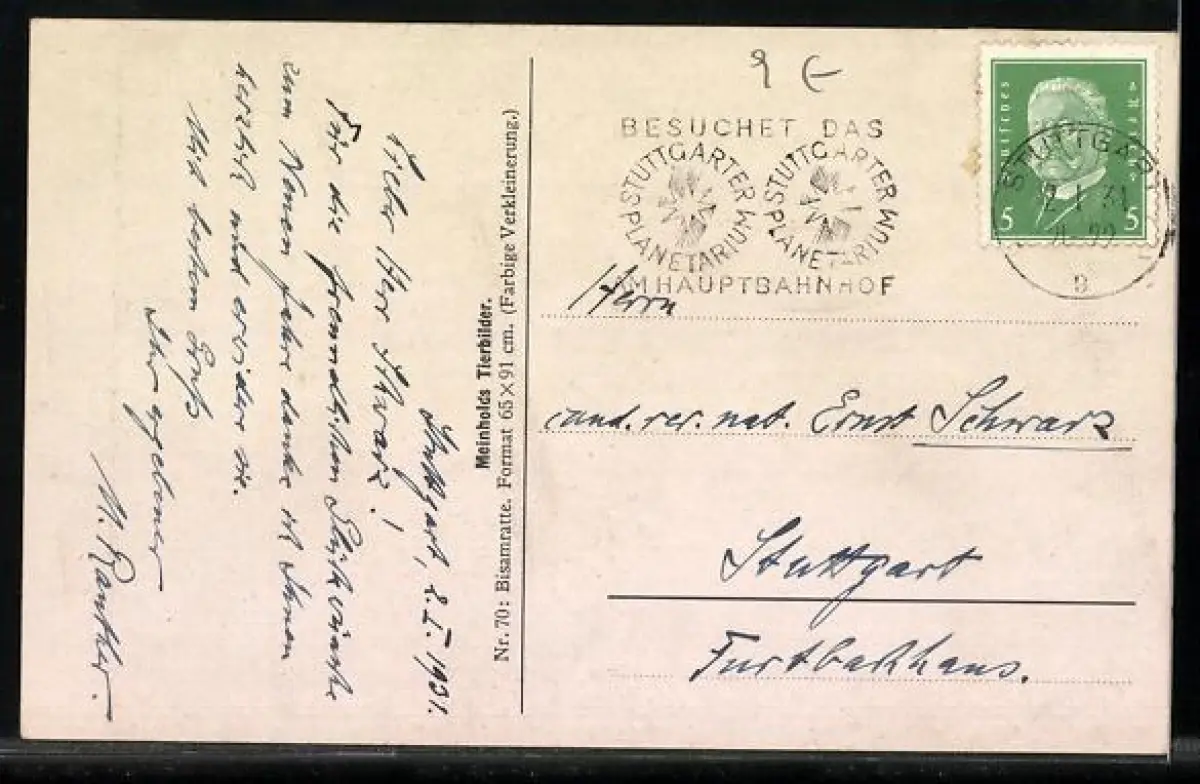 Stuttgart, 2. I. 1931.
Lieber Herr Schwarz!
Für die freundlichen Glückwünsche
zum Neuen Jahre danke ich Ihnen
herzlich und erwidere sie.
Mit bestem Gruß
Ihr ergebener
Meinholds Tierbilder.
Nr. 70: Bisamratte. Format 65 × 91 cm. (Farbige Verkleinerung.)
9 €
BESUCHET DAS
STUTTGARTER PLANETARIUM
STUTTGARTER PLANETARIUM
AM HAUPTBAHNHOF
STUTTGART
5 5
Herrn
cand. rer. nat. Ernst Schwarz
Stuttgart
Furtbachhaus.